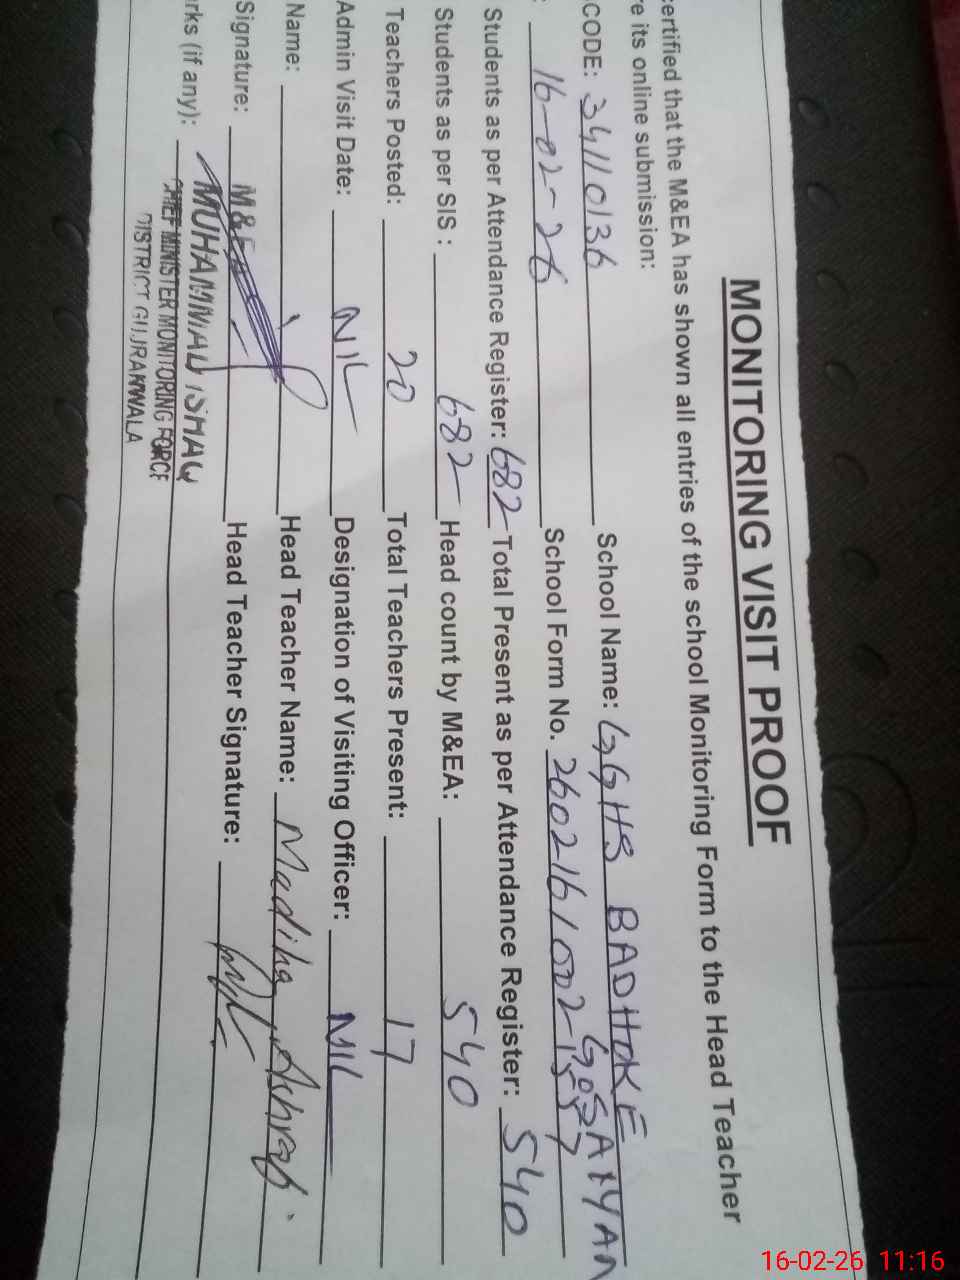 MONITORING VISIT PROOF
certified that the M&EA has shown all entries of the school Monitoring Form to the Head Teacher
re its online submission:
CODE: 34110136 School Name: GGHS BADHOKE
GOSAIYAN
: 16-02-26 School Form No. 260216100215
Students as per Attendance Register: 682 Total Present as per Attendance Register: 540
Students as per SIS : 682 Head count by M&EA: 540
Teachers Posted: 20 Total Teachers Present: 17
Admin Visit Date: NIL Designation of Visiting Officer: NIL
Name: Head Teacher Name: Madiha Ashraf.
Signature: M&EA Head Teacher Signature:
rks (if any): MUHAMMAD ISHAQ
CHIEF MINISTER MONITORING FORCE
DISTRICT GUJRANWALA
16-02-26 11:16